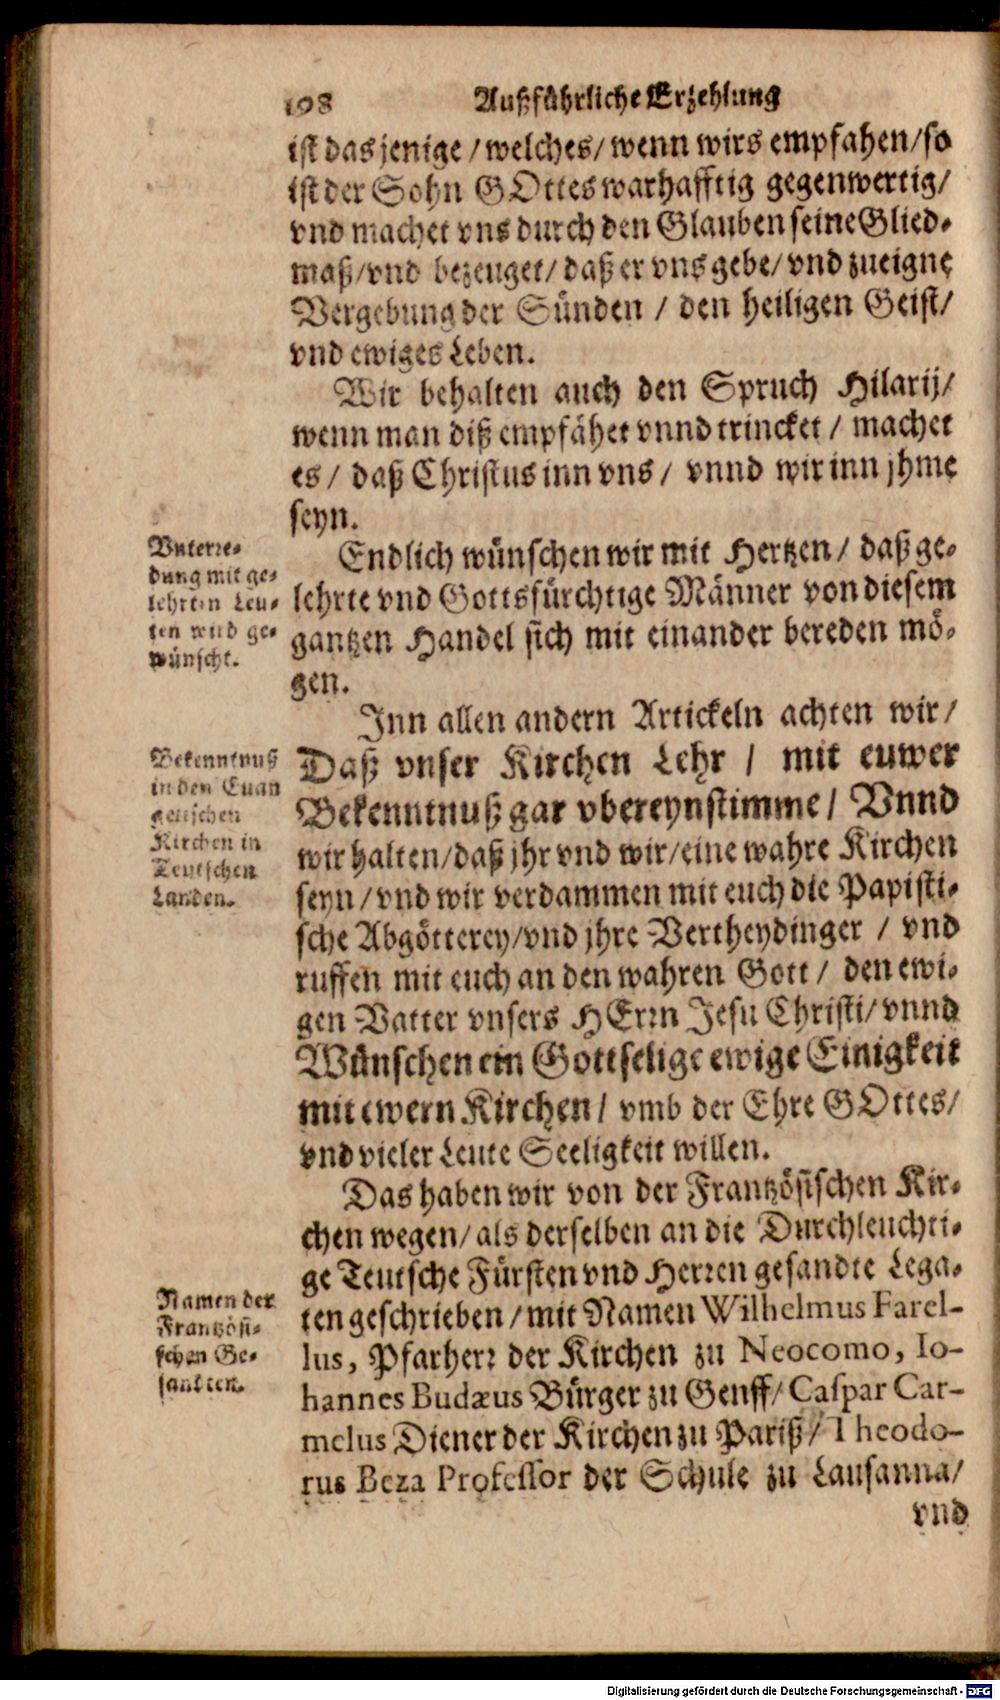 198 Außführliche Erzehlung
ist dasjenige / welches / wenn wirs empfahen / so
ist der Sohn GOttes warhafftig gegenwertig /
vnd machet vns durch den Glauben seine Glied-
maß / vnd bezeuget / daß er vns gebe / vnd zueigne
Vergebung der Sünden / den heiligen Geist /
vnd ewiges Leben.
Wir behalten auch den Spruch Hilarij /
wenn man diß empfähet vnnd trincket / machet
es / daß Christus inn vns / vnnd wir inn jhme
seyn.
Vnterre-
dung mit ge-
lehrten Leu-
ten wird ge-
wünscht.
Endlich wünschen wir mit Hertzen / daß ge-
lehrte vnd Gottsfürchtige Männer von diesem
gantzen Handel sich mit einander bereden mö-
gen.
Inn allen andern Artickeln achten wir /
Bekenntnuß
in den Euan
gelischen
Kirchen in
Teutschen
Landen.
Daß vnser Kirchen Lehr / mit euwer
Bekenntnuß gar vbereynstimme / Vnnd
wir halten / daß jhr vnd wir / eine wahre Kirchen
seyn / vnd wir verdammen mit euch die Papisti-
sche Abgötterey / vnd jhre Vertheydinger / vnd
ruffen mit euch an den wahren Gott / den ewi-
gen Vatter vnsers HErrn Jesu Christi / vnnd
Wünschen ein Gottselige ewige Einigkeit
mit ewern Kirchen / vmb der Ehre GOttes /
vnd vieler Leute Seeligkeit willen.
Das haben wir von der Frantzösischen Kir-
chen wegen / als derselben an die Durchleuchti-
ge Teutsche Fürsten vnd Herren gesandte Lega-
Namen der
Frantzösi-
schen Ge-
sandten.
ten geschrieben / mit Namen Wilhelmus Farel-
lus, Pfarherr der Kirchen zu Neocomo, Io-
hannes Budæus Bürger zu Genff / Caspar Car-
melus Diener der Kirchen zu Pariß / Theodo-
rus Beza Professor der Schule zu Lausanna /
vnd
Digitalisierung gefördert durch die Deutsche Forschungsgemeinschaft - DFG